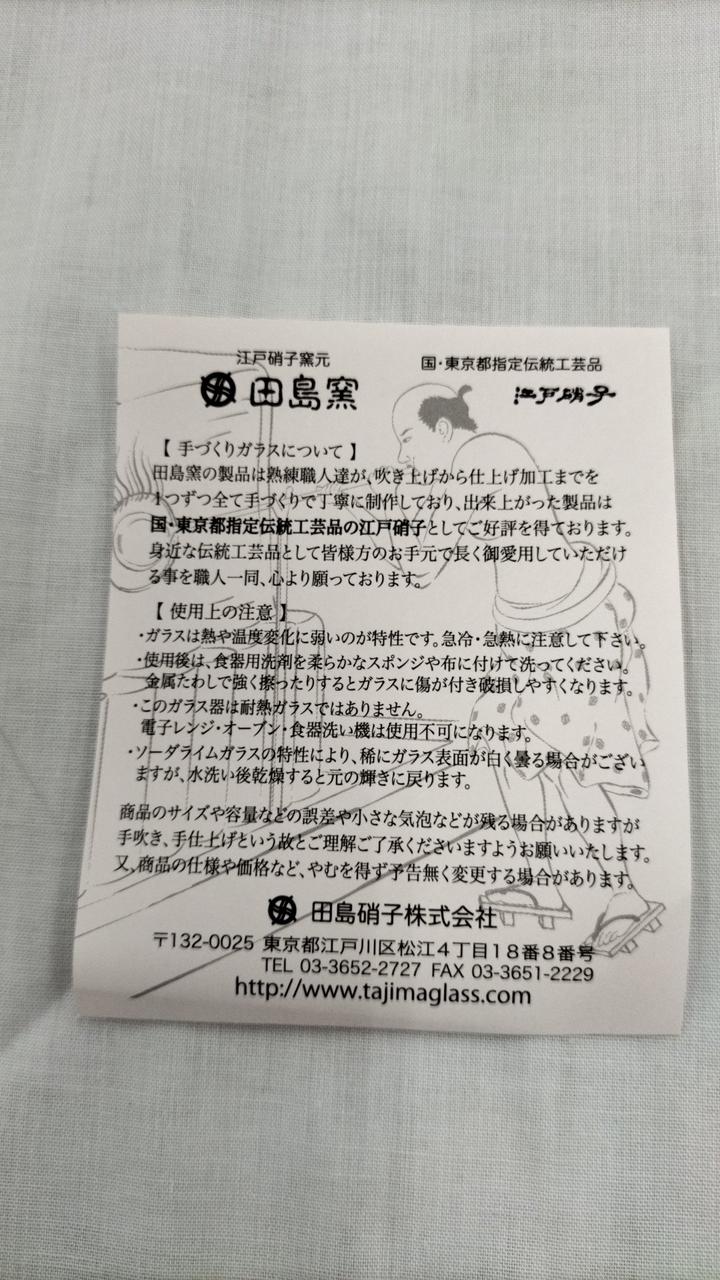 江戸硝子窯元
田島窯
国・東京都指定伝統工芸品
江戸硝子
【 手づくりガラスについて 】
田島窯の製品は熟練職人達が、吹き上げから仕上げ加工までを
1つずつ全て手づくりで丁寧に制作しており、出来上がった製品は
国・東京都指定伝統工芸品の江戸硝子としてご好評を得ております。
身近な伝統工芸品として皆様方のお手元で長く御愛用していただけ
る事を職人一同、心より願っております。
【 使用上の注意 】
・ガラスは熱や温度変化に弱いのが特性です。急冷・急熱に注意して下さい。
・使用後は、食器用洗剤を柔らかなスポンジや布に付けて洗ってください。
金属たわしで強く擦ったりするとガラスに傷が付き破損しやすくなります。
・このガラス器は耐熱ガラスではありません。
電子レンジ・オーブン・食器洗い機は使用不可になります。
・ソーダライムガラスの特性により、稀にガラス表面が白く曇る場合がござい
ますが、水洗い後乾燥すると元の輝きに戻ります。
商品のサイズや容量などの誤差や小さな気泡などが残る場合がありますが
手吹き、手仕上げという故とご理解ご了承くださいますようお願いいたします。
又、商品の仕様や価格など、やむを得ず予告無く変更する場合があります。
田島硝子株式会社
〒132-0025 東京都江戸川区松江4丁目18番8番号
TEL 03-3652-2727 FAX 03-3651-2229
http://www.tajimaglass.com